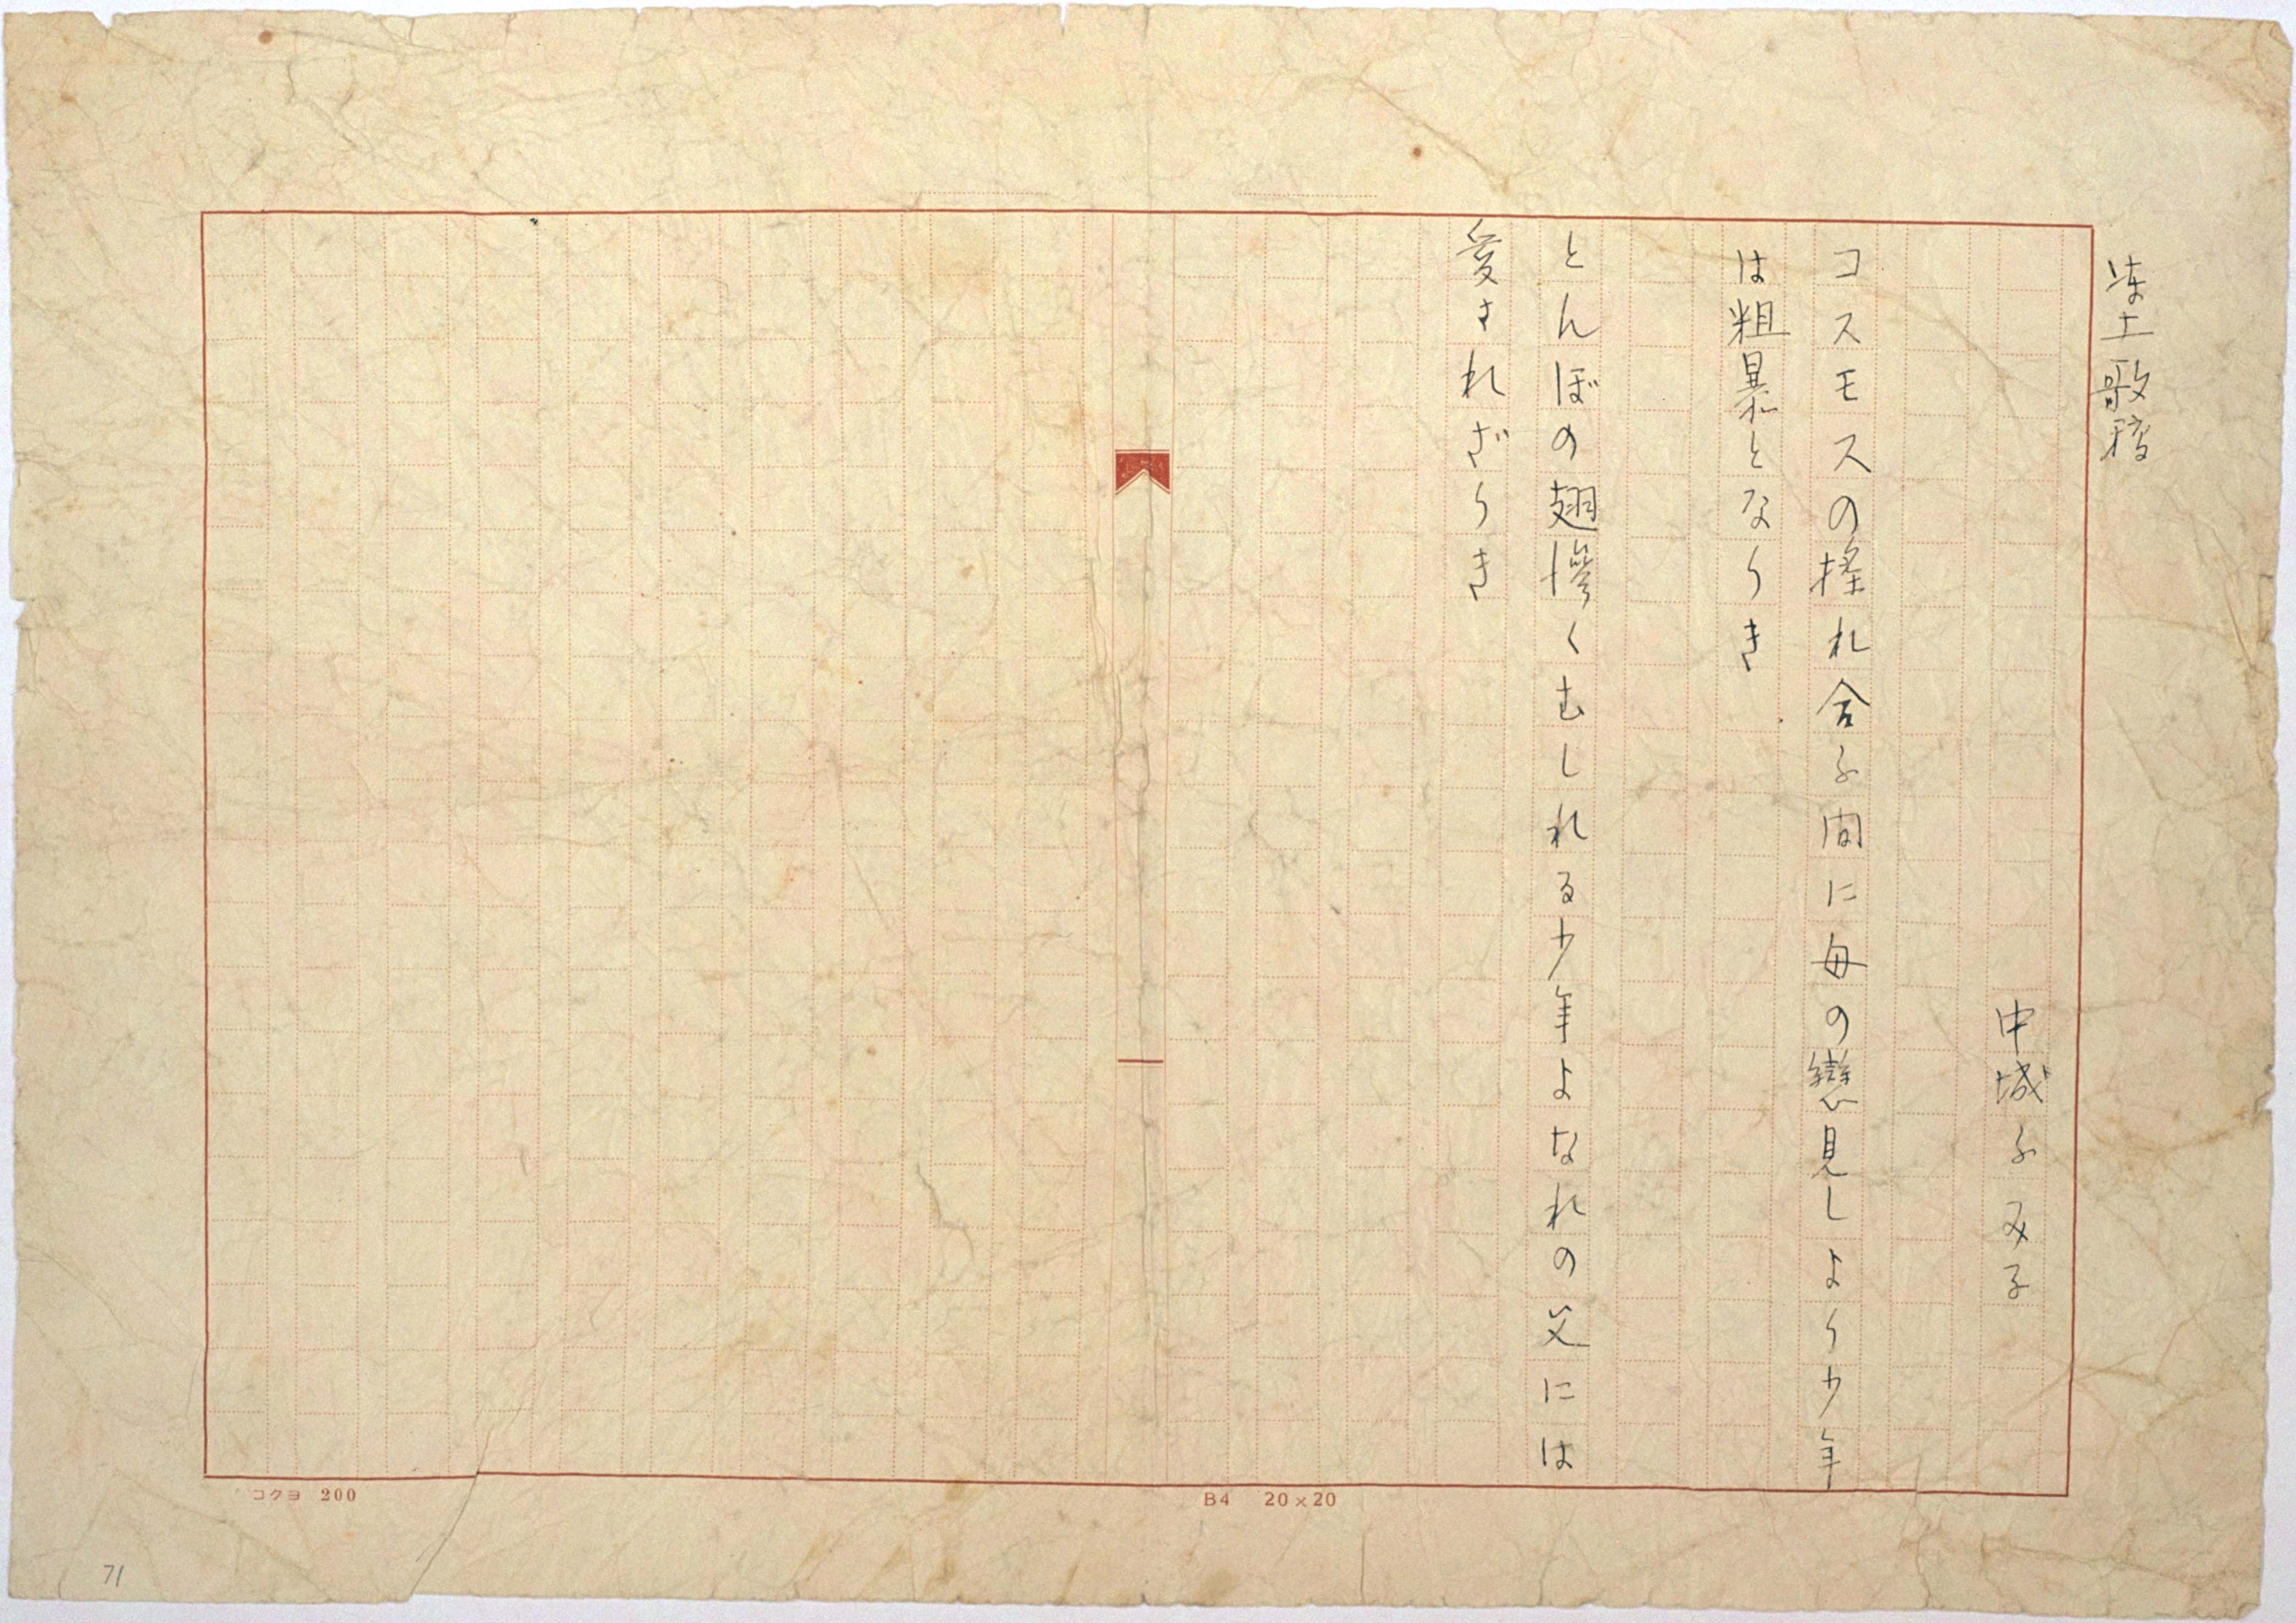 凍土歌稿
中城ふみ子
コスモスの搖れ合ふ間に母の戀見しより少年
は粗暴となりき
とんぼの翅慘くむしれる少年よなれの父には
愛されざりき
コクヨ 200
B4 20×20
71